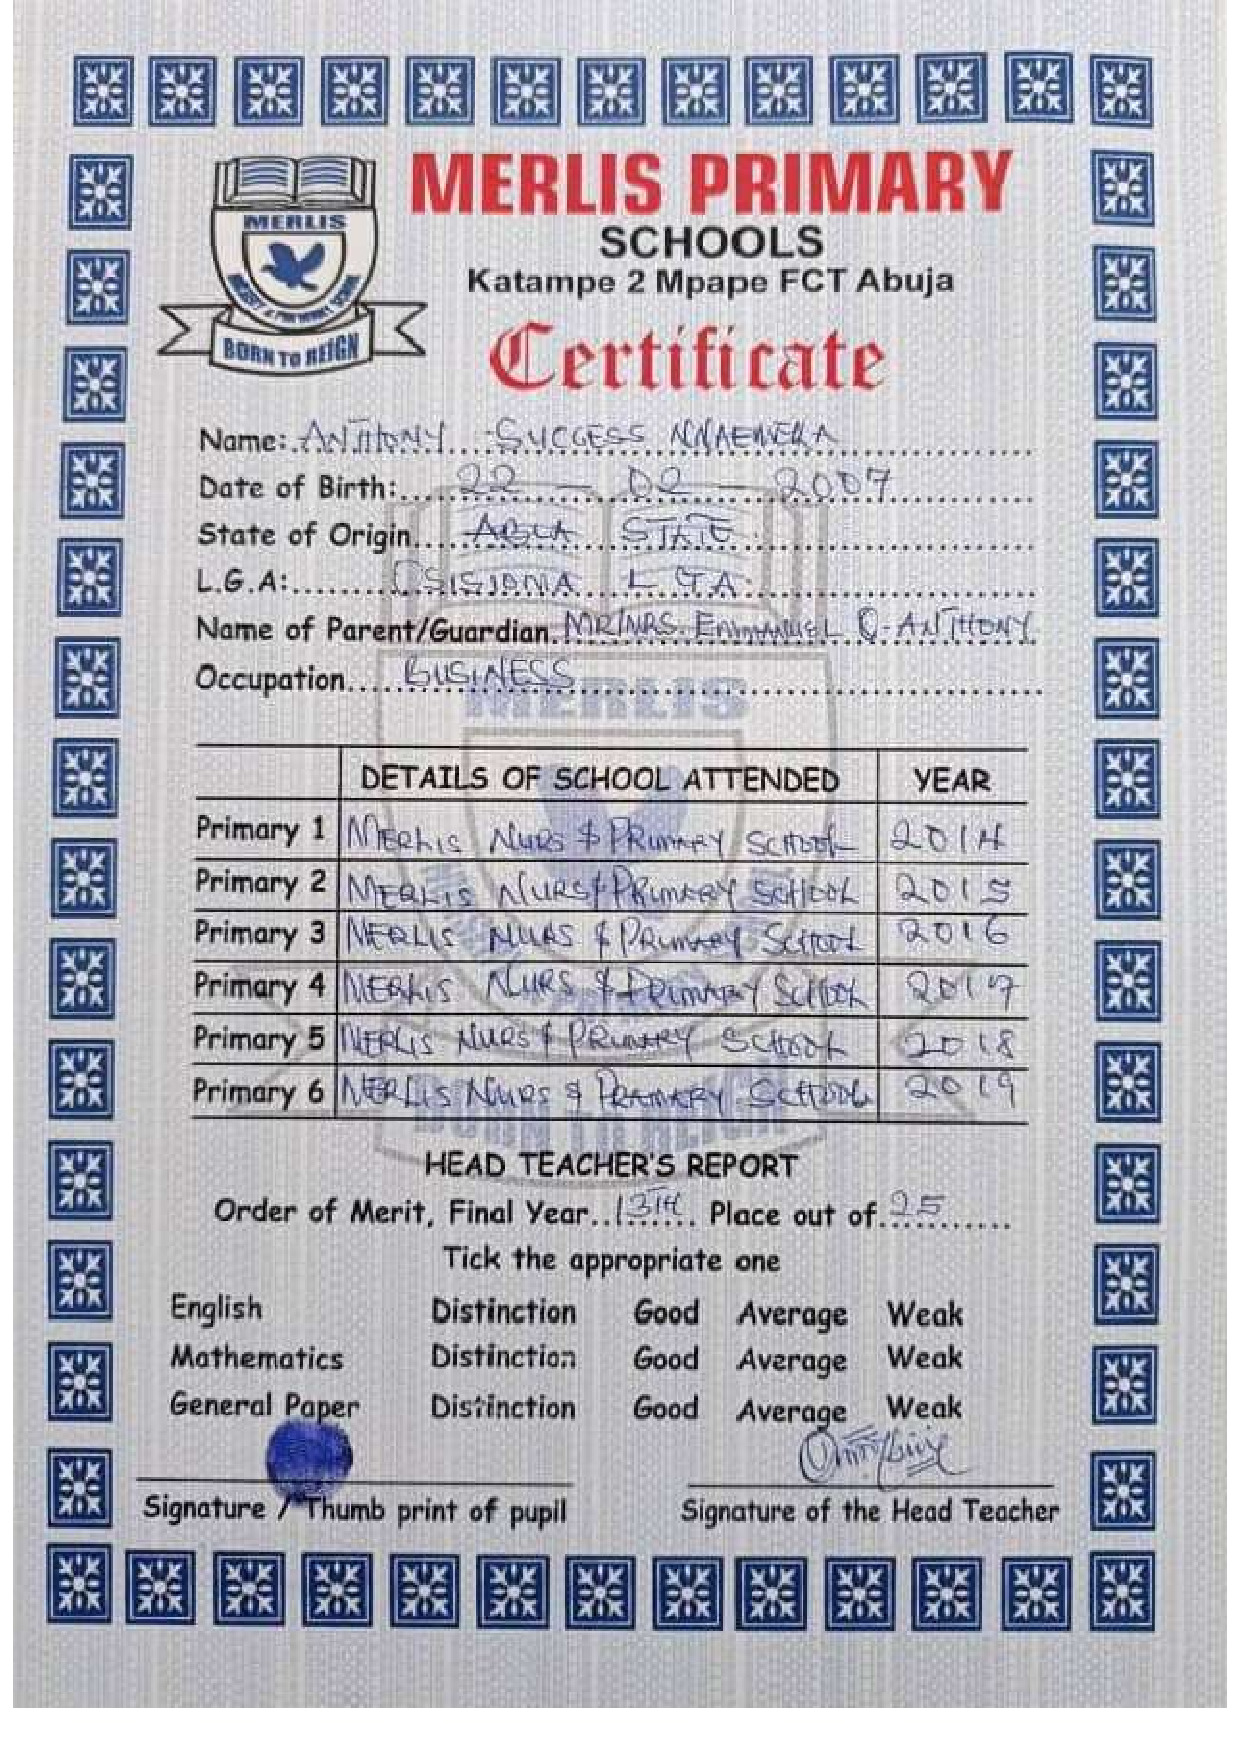 MERLIS
NURSERY & PRIMARY SCHOOL
BORN TO REIGN
MERLIS PRIMARY
SCHOOLS
Katampe 2 Mpape FCT Abuja
Certificate
Name: ANTHONY SUCCESS NNAEMEKA
Date of Birth: 22 - 02 - 2007
State of Origin ABIA STATE
L.G.A: OSISIOMA L G A
Name of Parent/Guardian MR/MRS. EMMANUEL O. ANTHONY
Occupation BUSINESS
DETAILS OF SCHOOL ATTENDED YEAR
Primary 1 MERLIS NURS & PRIMARY SCHOOL 2014
Primary 2 MERLIS NURS & PRIMARY SCHOOL 2015
Primary 3 MERLIS NURS & PRIMARY SCHOOL 2016
Primary 4 MERLIS NURS & PRIMARY SCHOOL 2017
Primary 5 MERLIS NURS & PRIMARY SCHOOL 2018
Primary 6 MERLIS NURS & PRIMARY SCHOOL 2019
HEAD TEACHER'S REPORT
Order of Merit, Final Year 13TH Place out of 25
Tick the appropriate one
English Distinction Good Average Weak
Mathematics Distinction Good Average Weak
General Paper Distinction Good Average Weak
Signature / Thumb print of pupil Signature of the Head Teacher